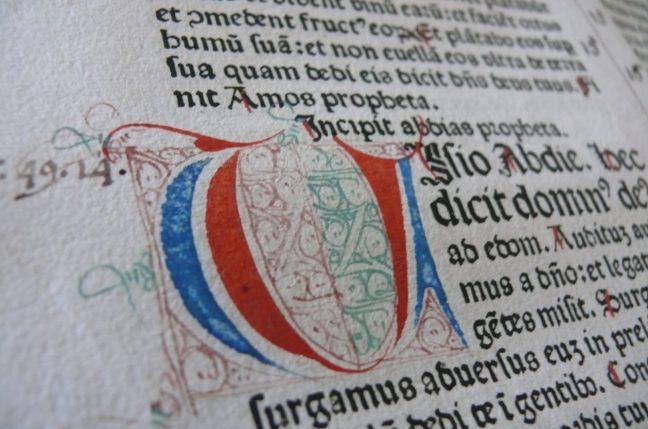 et comedent fruct⁹ eoꝝ. Et plātabo eos sup
humū suā: et non euellā eos vltra de terra
sua quam dedi eis dicit dn̄s deus tuus. Fi
nit Amos propheta.
Incipit abdias propheta.
49. 14.
V
Isio Abdie. Hec
dicit domin⁹ de⁹
ab edom. Audituꝫ au
mus a dn̄o: et legat
gētes misit. Surg
surgamus aduersus euꝫ in prel
dedi te ī gentibꝰ. Con